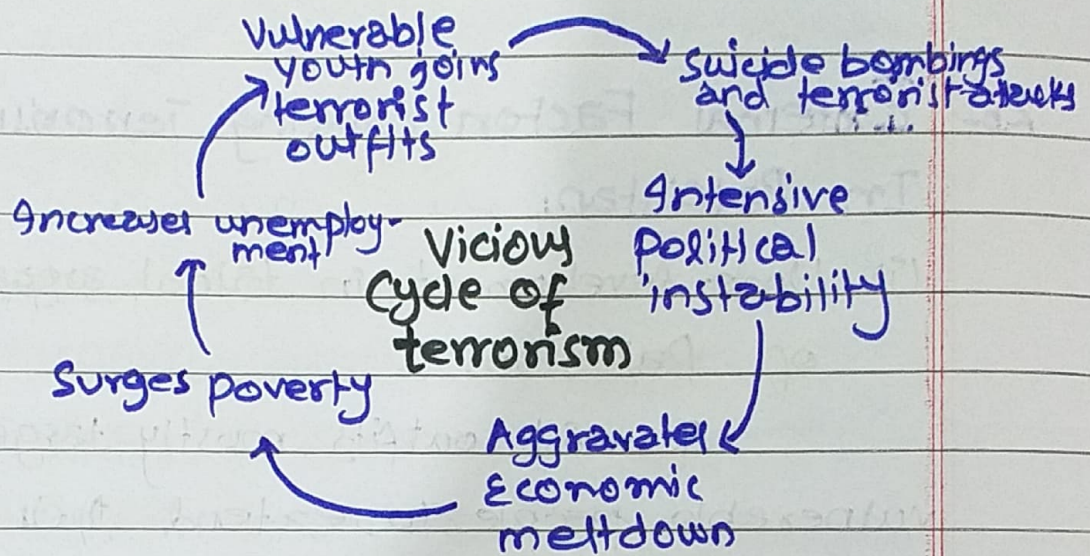 Vulnerable
youth goins
terrorist
outfits
suicide bombings
and terrorist attacks
Intensive
political
instability
Aggravates
Economic
meltdown
Surges poverty
Increases unemploy-
ment
Vicious
Cycle of
terrorism